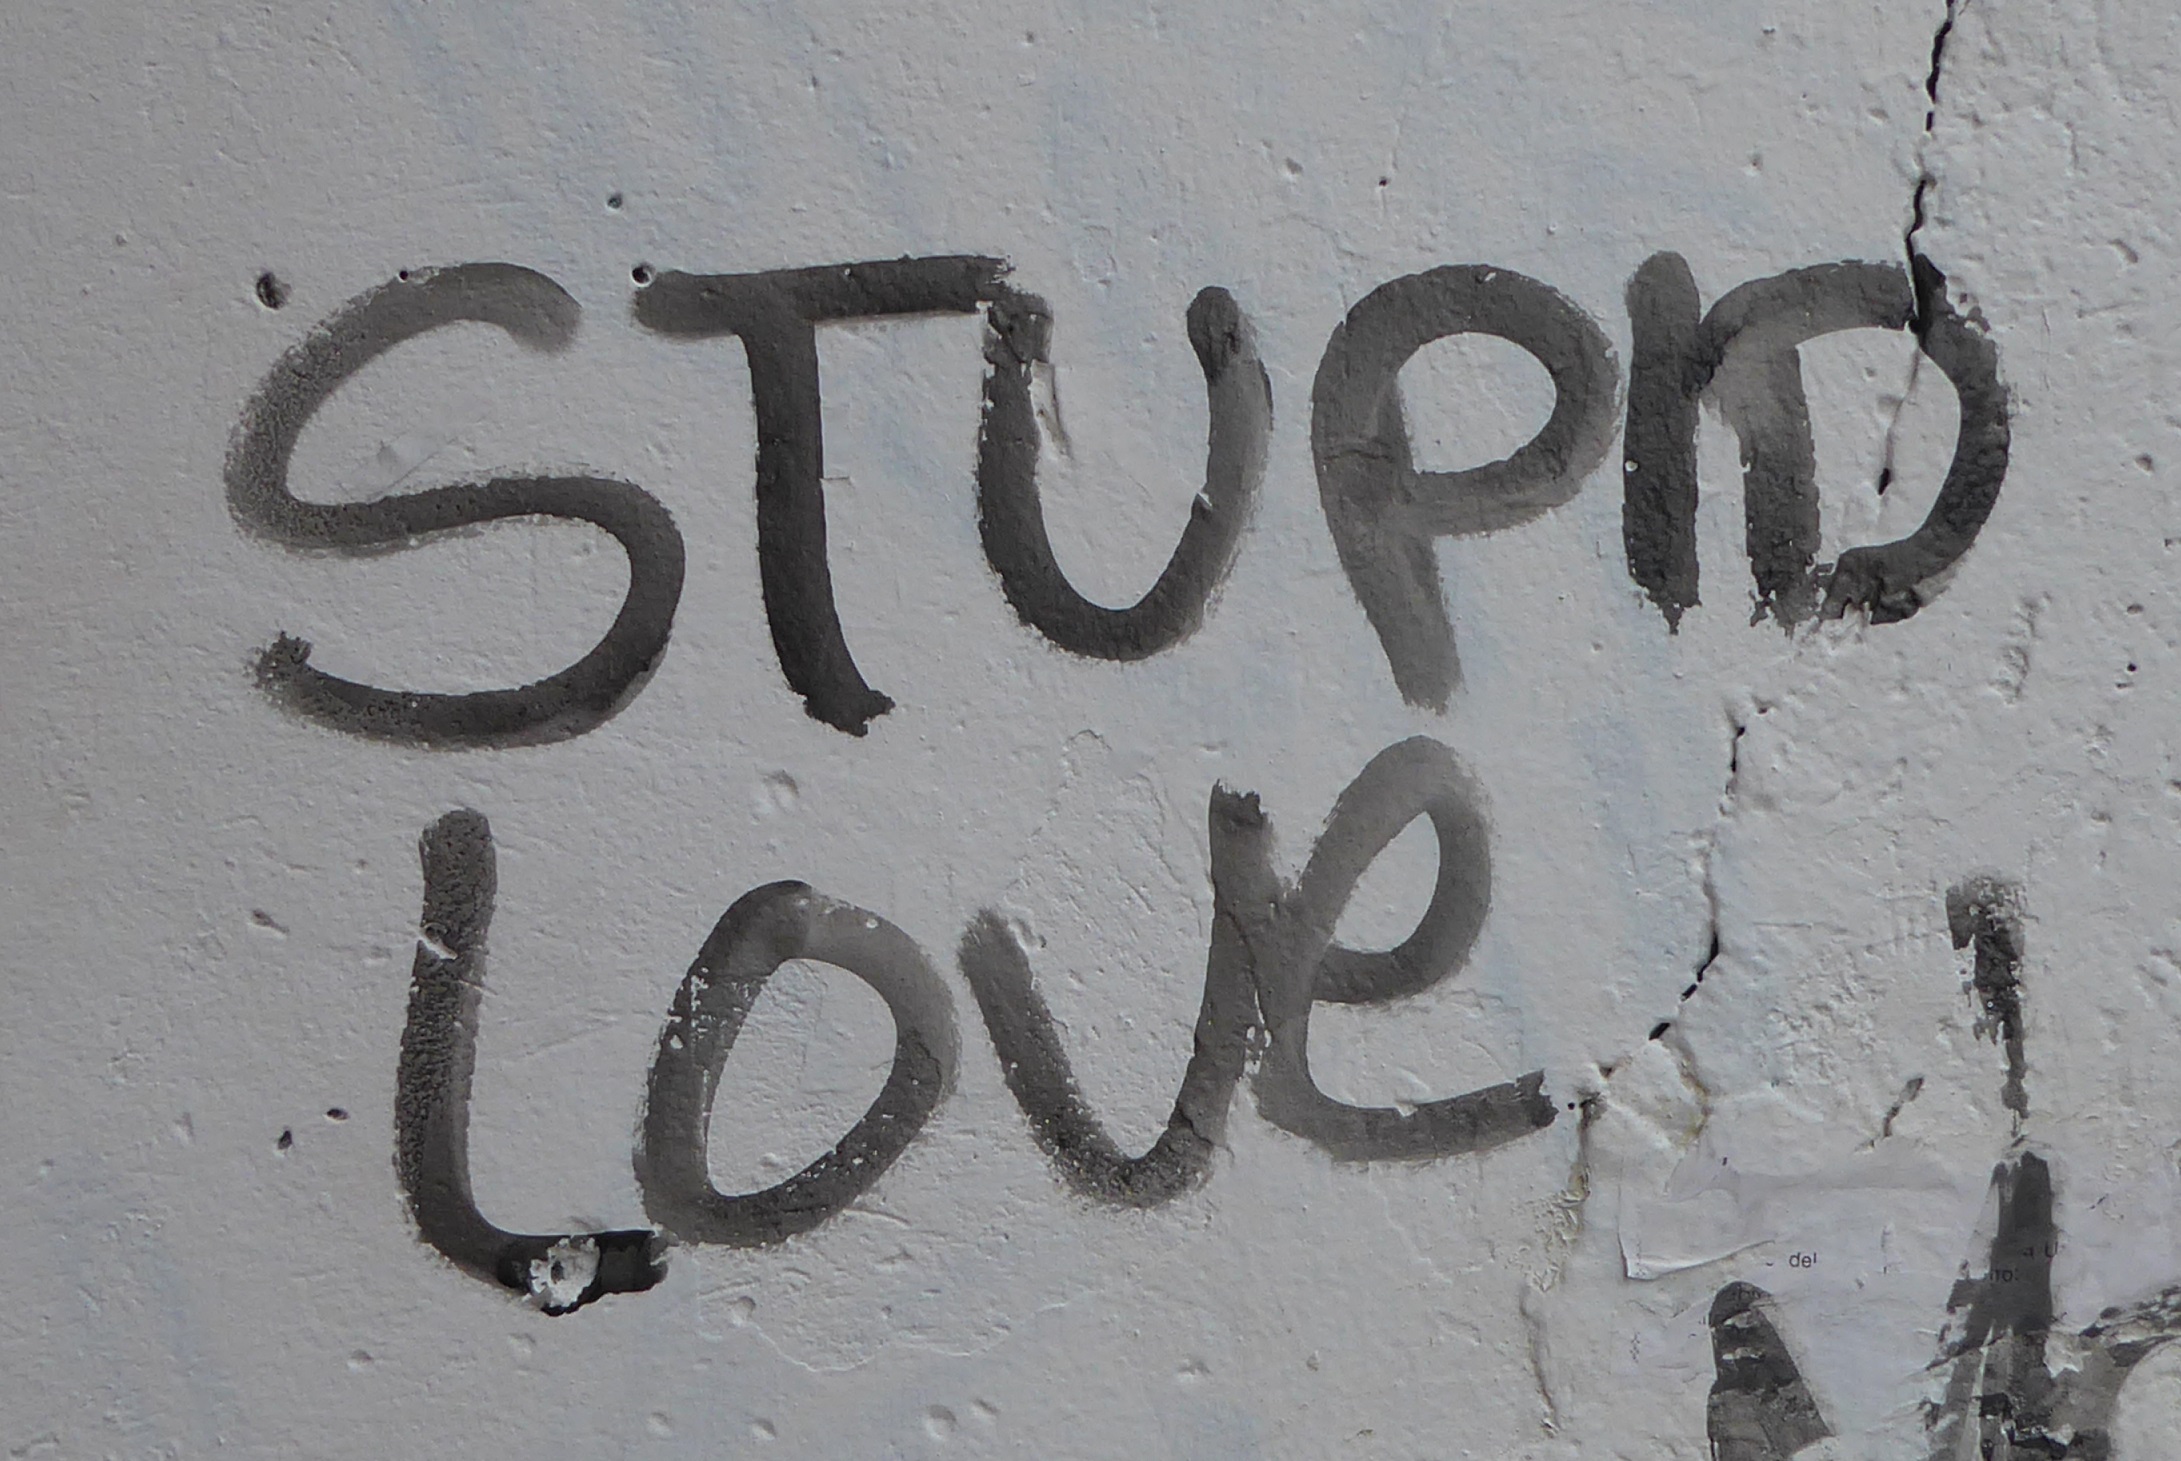 STUPID
LOVe
del